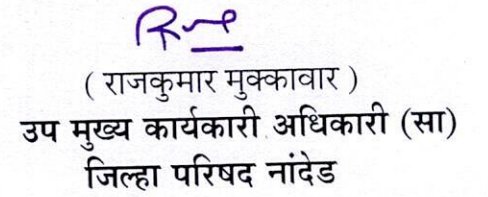 ( राजकुमार मुक्कावार )
उप मुख्य कार्यकारी अधिकारी (सा)
जिल्हा परिषद नांदेड